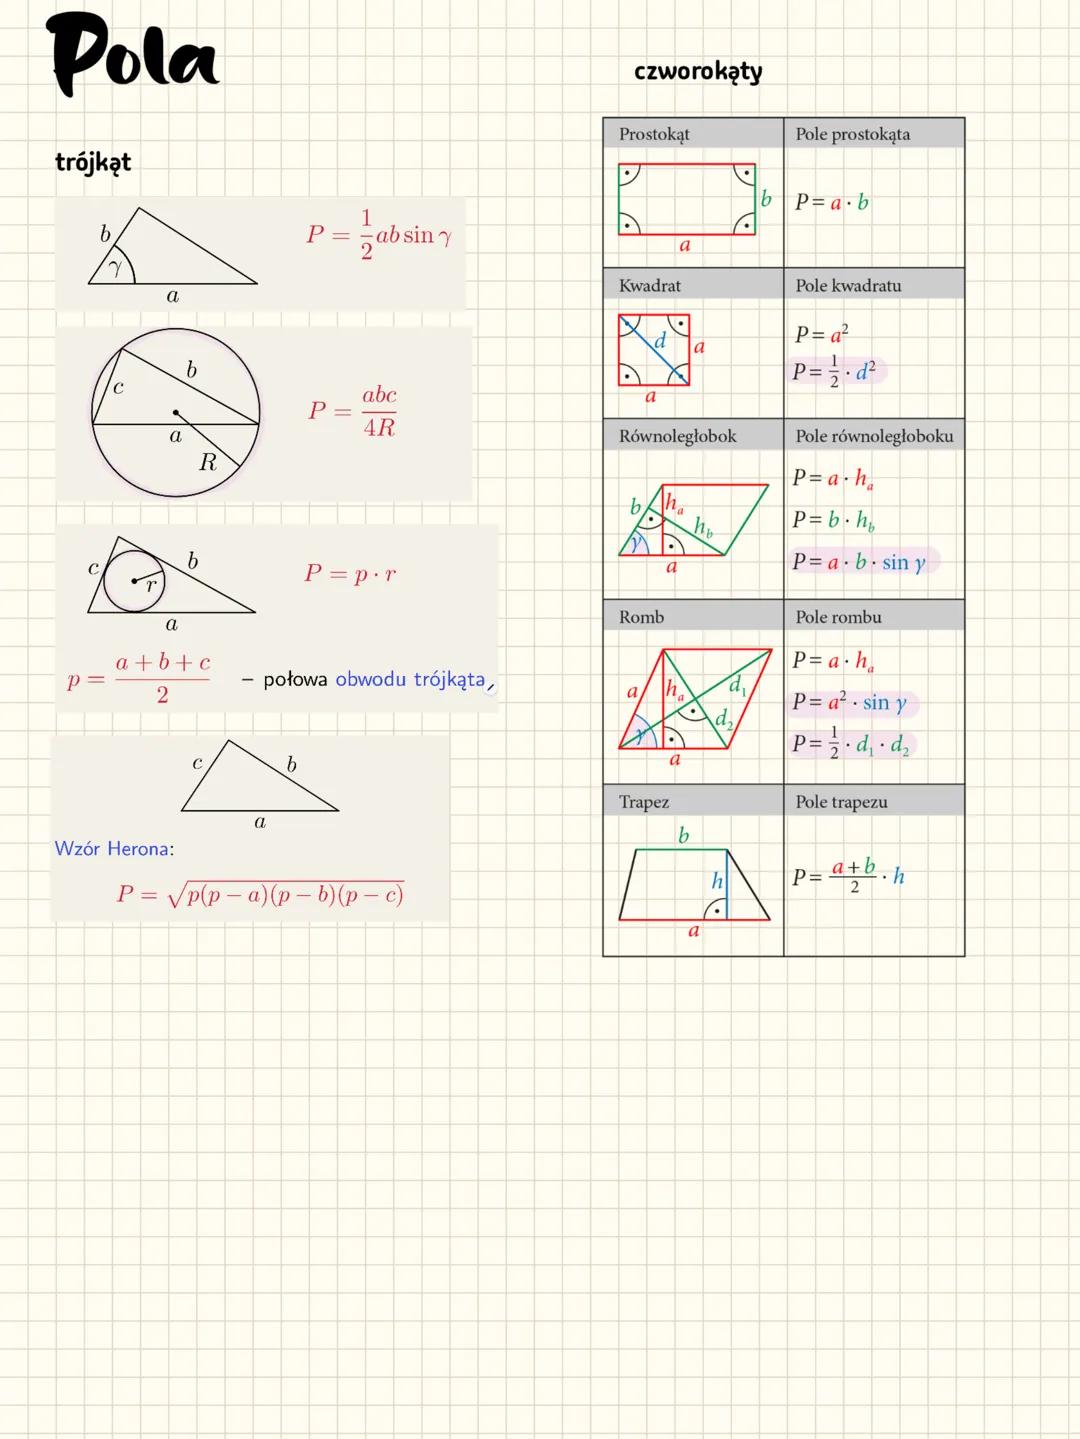 Pola
trójkąt
b
γ
a
P = 1/2 ab sin γ
c
b
a
R
P = abc/4R
c
b
r
a
P = p · r
p = a + b + c/2 – połowa obwodu trójkąta,
c
b
a
Wzór Herona:
P = √p(p − a)(p − b)(p − c)
czworokąty
Prostokąt
Pole prostokąta
b
a
P = a · b
Kwadrat
Pole kwadratu
d
a
a
P = a²
P = 1/2 · d²
Równoległobok
Pole równoległoboku
b
hₐ
h_b
γ
a
P = a · hₐ
P = b · h_b
P = a · b · sin γ
Romb
Pole rombu
a
hₐ
d₁
d₂
γ
a
P = a · hₐ
P = a² · sin γ
P = 1/2 · d₁ · d₂
Trapez
Pole trapezu
b
h
a
P = a + b/2 · h